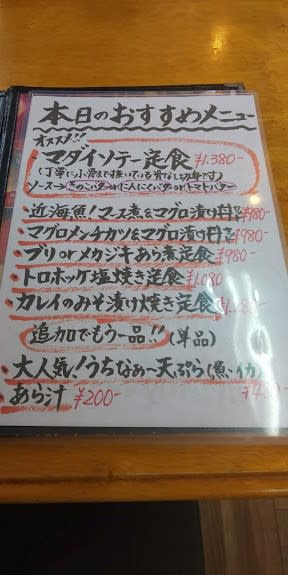 本日のおすすめメニュー
オススメ!!
・マダイソテー定食 ¥1.380-
(丁寧に小骨まで抜いている骨なし切身です)
ソース→きのこバターorにんにくバターorトマトバター
・近海魚!マース煮&マグロ漬け丼 ¥980-
・マグロメンチカツ&マグロ漬け丼 ¥980-
・ブリorメカジキあら煮定食 ¥980-
・トロホッケ塩焼き定食 ¥1.080
・カレイのみそ漬け焼き定食
追加でもう一品!!(単品)
・大人気!うちなぁ〜天ぷら(魚・イカ)
・あら汁 ¥200-